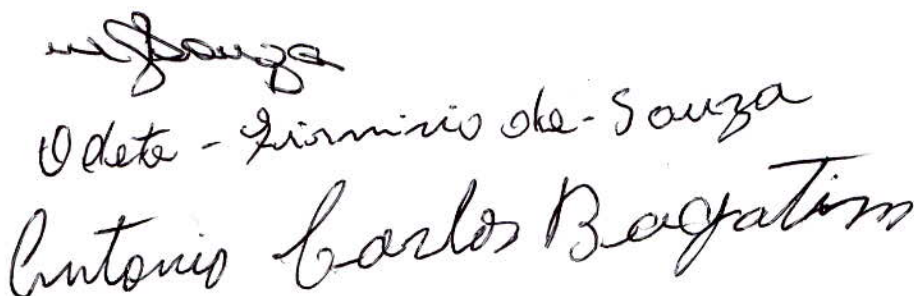 Odete - Firmino de - Souza
Antonio Carlos Bagatim